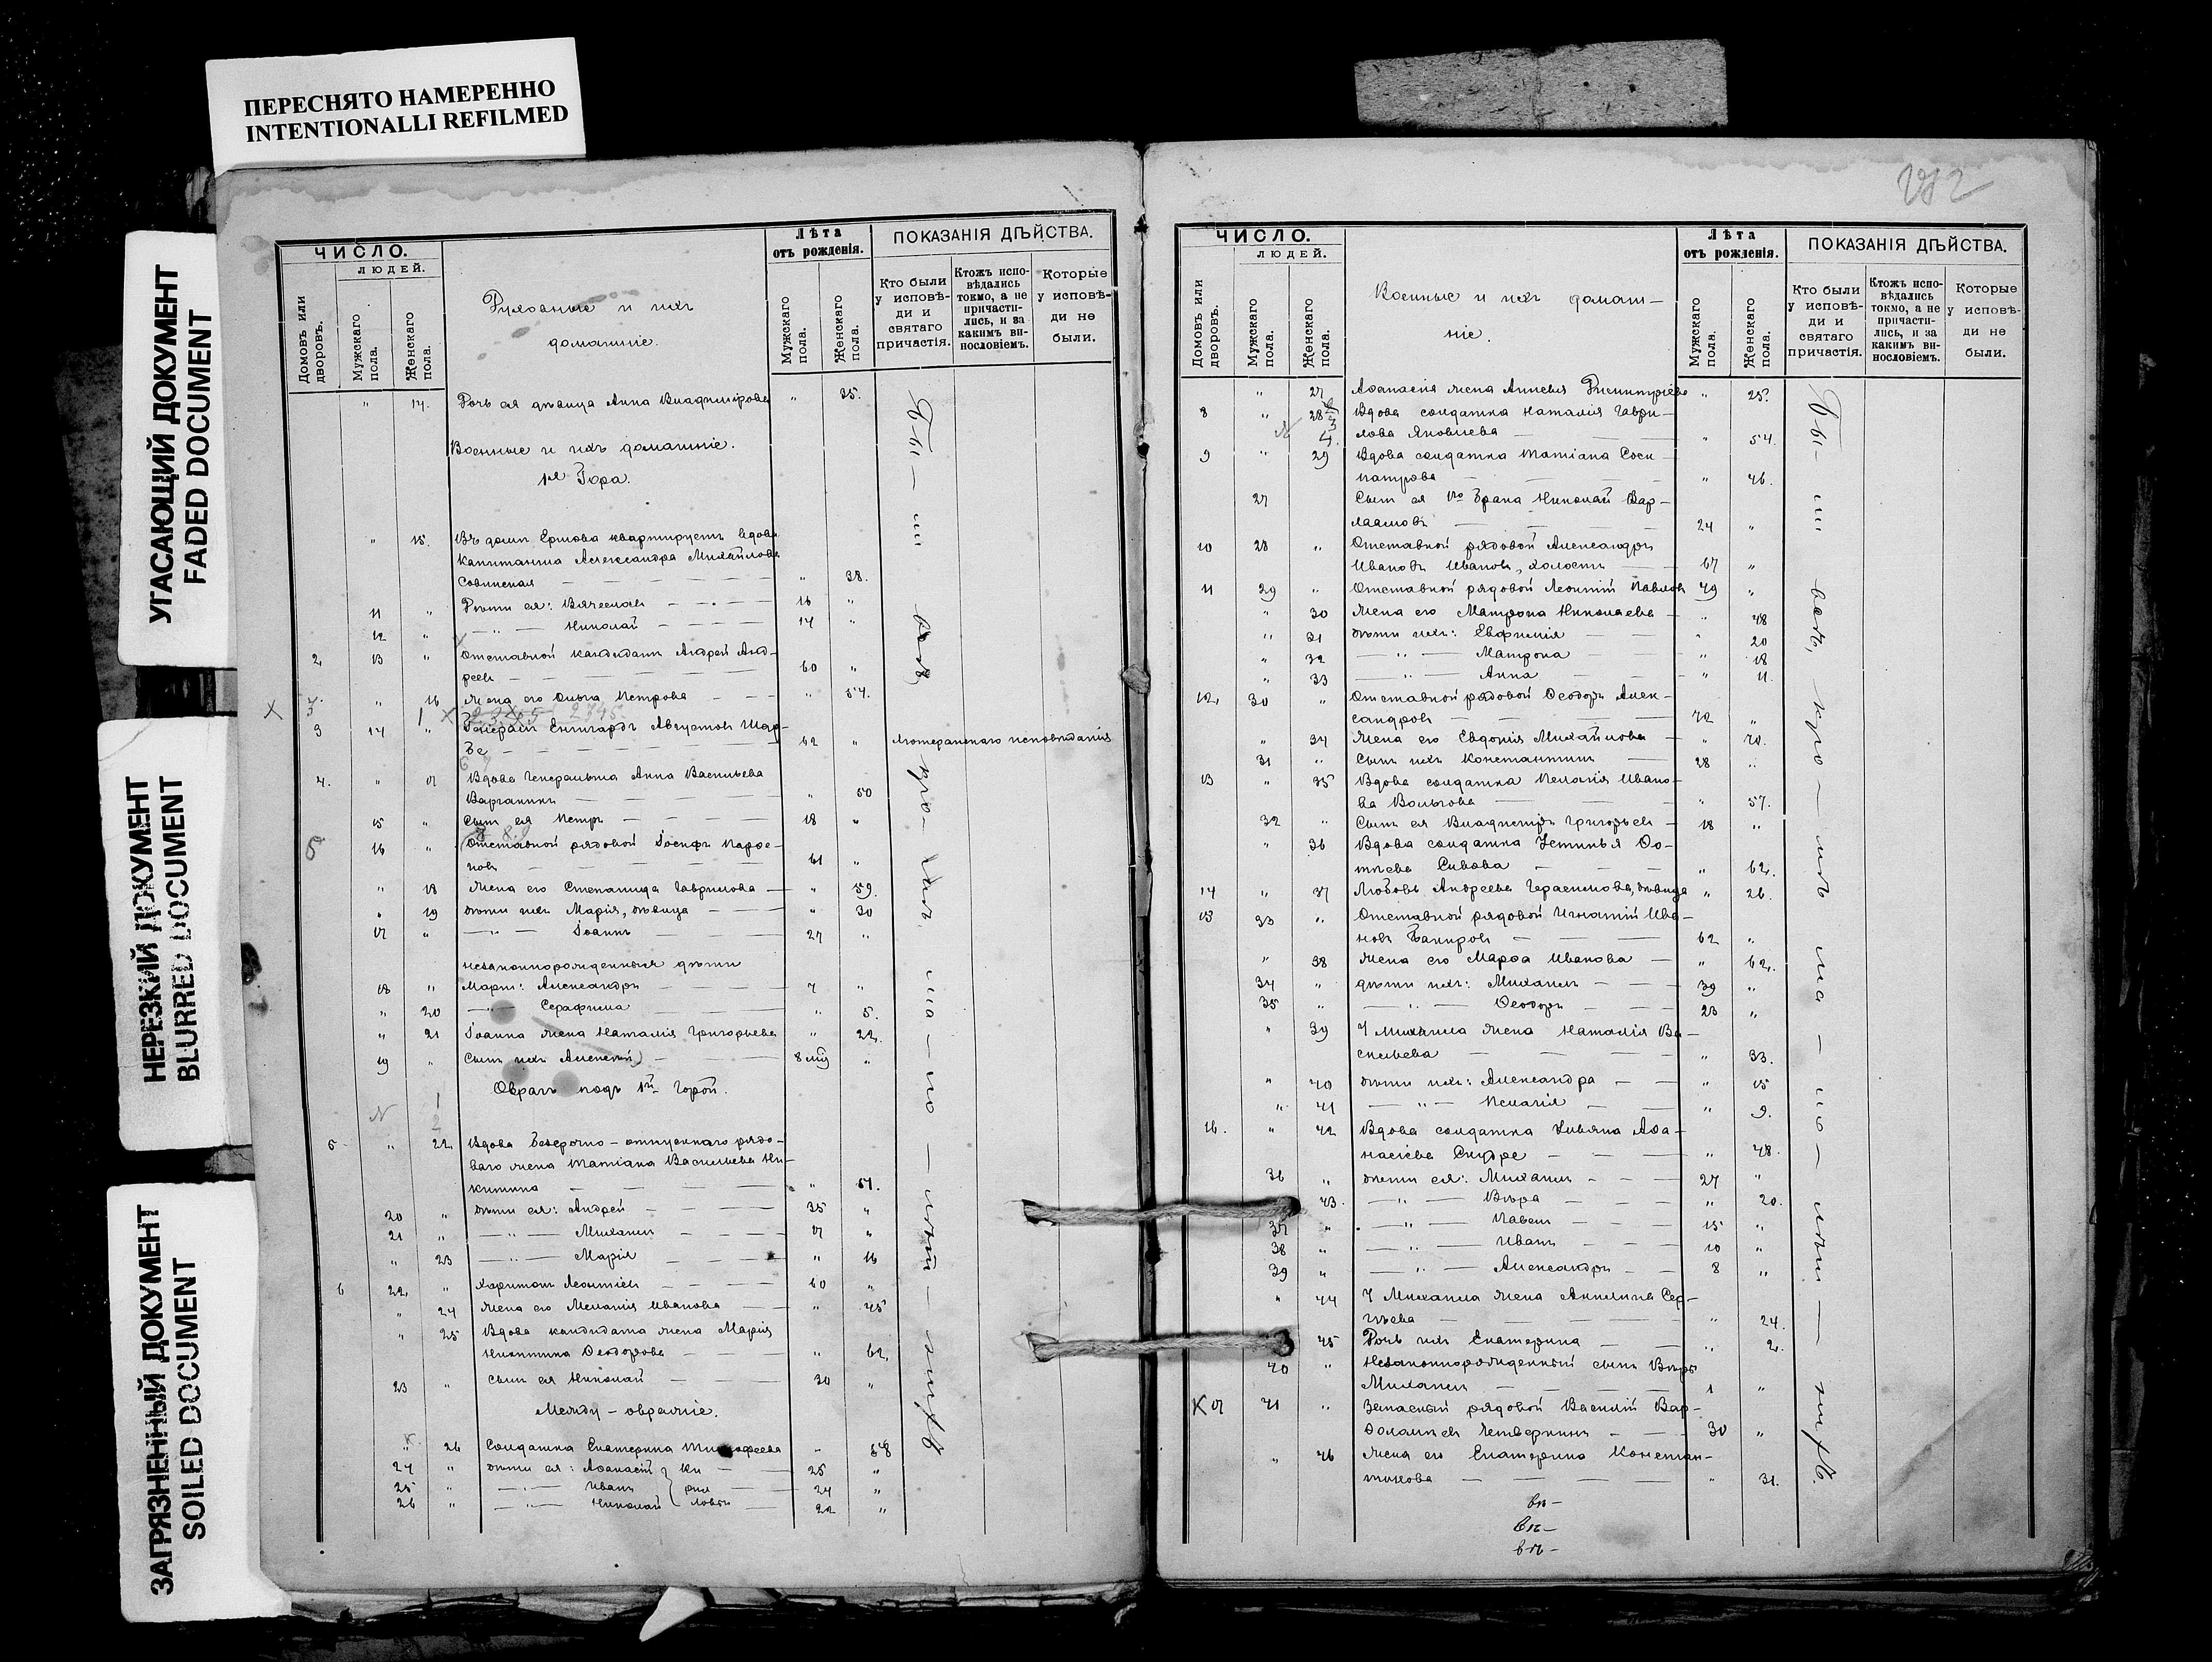 ПЕРЕСНЯТО НАМЕРЕННО
INTENTIONALLI REFILMED
УГАСАЮЩИЙ ДОКУМЕНТ
FADED DOCUMENT
НЕРЕЗКИЙ ДОКУМЕНТ
BLURRED DOCUMENT
ЗАГРЯЗНЕННЫЙ ДОКУМЕНТ
SOILED DOCUMENT
ЧИСЛО.
ЛЮДЕЙ.
Домовъ или дворовъ.
Мужскаго пола.
Женскаго пола.
Духовные и ихъ
домашніе.
Лѣта
отъ рожденія.
Мужскаго пола.
Женскаго пола.
ПОКАЗАНІЯ ДѢЙСТВА.
Кто были у исповѣди и святаго причастія.
Ктожъ исповѣдались токмо, а не причастились, и за какимъ винословіемъ.
Которые у исповѣди не были.
" 14. Дочь ея дѣвица Анна Владимірова " 35.
Военные и ихъ домашніе.
1я Гора.
" 15. Въ домѣ Ершова квартируетъ вдова
Капитанша Александра Михайлова
Совинская — " 38.
11 " Дѣти ея: Вячеславъ — 16 "
12 " — " — Николай — 14 "
2 13 " Отставной кандидатъ Андрей Анд-
реевъ — 60 "
" 16 Жена его Ольга Петрова — " 54.
3 14 " Генералъ Енгигардъ Августовъ Шар-
бе — 62 " Лютеранскаго исповѣданія
4. " 17 Вдова Генеральша Анна Васильева
Варганинъ — " 50
15 " Сынъ ея Петръ — 18 "
16 " Отставной рядовой Іосифъ Парфе-
новъ — 61 "
" 18 Жена его Степанида Гаврилова — " 59.
" 19 Дѣти ихъ Марія, дѣвица — " 30
17 " — " — Іоаннъ 27 "
незаконнорожденныя дѣти
18 " Маріи: Александръ — 7 "
" 20 — " Серафима " 5.
" 21 Іоанна жена Наталія Григорьева " 22.
19 " Сынъ ихъ Алексѣй — 8 мѣ "
Оврагъ подъ 1й Горой.
5 " 22 Вдова безсрочно-отпускнаго рядо-
ваго жена Татіана Васильева Ни-
китина — " 51.
20 " Дѣти ея: Андрей — 35 "
21 " — " — Михаилъ — 17 "
" 23 — " — Марія — " 16
6 22 " Харитонъ Леонтіевъ — 60 "
" 24 Жена его Меланія Иванова — " 45
" 25 Вдова кандидата жена Марія
Никитина Ѳеодорова — " 62.
23 " Сынъ ея Николай — 30 "
Между-овражіе.
" 26 Солдатка Екатерина Тимофеева " 58
24 " Дѣти ея: Аѳанасій } Ки — 25 "
25 " — " — Иванъ } рил — 24 "
26 " — " — Николай } ловы — 22 "
Бы- ли всѣ, кро- мѣ ма- ло- лѣт- нихъ
252
ЧИСЛО.
ЛЮДЕЙ.
Домовъ или дворовъ.
Мужскаго пола.
Женскаго пола.
Военные и ихъ домаш-
ніе.
Лѣта
отъ рожденія.
Мужскаго пола.
Женскаго пола.
ПОКАЗАНІЯ ДѢЙСТВА.
Кто были у исповѣди и святаго причастія.
Ктожъ исповѣдались токмо, а не причастились, и за какимъ винословіемъ.
Которые у исповѣди не были.
" 27 Аѳанасія жена Димитріева " 25.
8 " 28 Вдова солдатка Наталія Гаври-
лова Яковлева — " 54.
9 " 29 Вдова солдатка Татіана Соси-
патрова " 46.
27 Сынъ ея 1го брака Николай Вар-
лаамовъ — 24 "
10 28 " Отставной рядовой Александръ
Ивановъ Ивановъ, холостъ — 67 "
11 29 " Отставной рядовой Леонтій Павловъ 49 "
" 30 Жена его Матрона Николаева — " 48
" 31 Дѣти ихъ: Евфимія — " 20
" 32 — " — Матрона — " 18
" 33 — " — Анна — " 11.
12 30 " Отставной рядовой Ѳеодоръ Алек-
сандровъ — 72 "
" 34 Жена его Евдокія Михайлова — " 70.
31 " Сынъ ихъ Константинъ — 28 "
13 " 35 Вдова солдатка Пелагія Ивано-
ва Волкова — " 57.
32 " Сынъ ея Владиміръ Григорьевъ — 18 "
" 36 Вдова солдатка Устинья Ѳо-
тіева Сивова — " 62.
14 " 37 Любовь Андреева Герасимова, дѣвица " 26.
15 33 " Отставной рядовой Игнатій Ива-
новъ Бакировъ — 62 "
" 38 Жена его Марѳа Иванова — " 62.
34 " Дѣти ихъ: Михаилъ — 39 "
35 " — " — Ѳеодоръ — 23 "
" 39 У Михаила жена Наталія Ва-
сильева — " 33.
" 40 Дѣти ихъ: Александра — " 15
" 41 — " — Пелагія — " 9.
16. " 42 Вдова солдатка Ульяна Аѳа-
насіева — " 48.
36 " Дѣти ея: Михаилъ — 27 "
" 43. — " — Вѣра — " 20.
37 " — " — Павелъ — 15 "
38 " — " — Иванъ — 10 "
39 " — " — Александръ — 8 "
" 44 У Михаила жена Акилина Сер-
гѣева — " 24.
" 45 Дочь ихъ Екатерина — " 2.
40 " Незаконнорожденный сынъ Вѣры
Михаилъ — 1 "
17 41 " Запасный рядовой Василій Вар-
ѳоломѣевъ Четверкинъ — 30 "
" 46 Жена его Екатерина Констан-
тинова — " 31.
Бы- ли всѣ, кро- мѣ ма- ло- лѣт- нихъ.